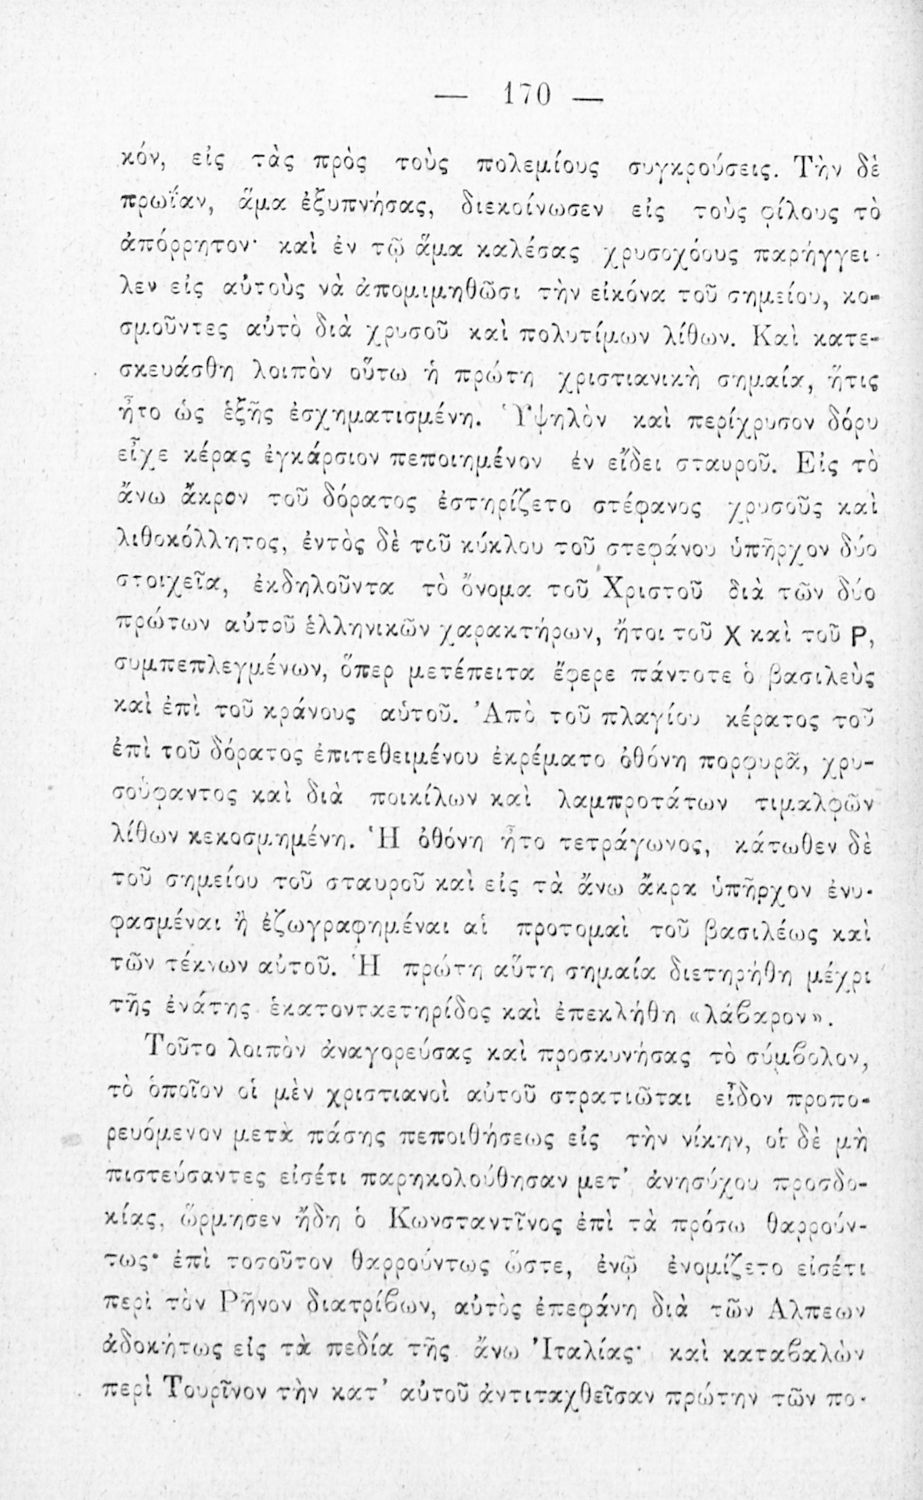 — 170 —
κόν, εἰς τὰς πρὸς τοὺς πολεμίους συγκρούσεις. Τὴν δὲ
πρωΐαν, ἅμα ἐξυπνήσας, διεκοίνωσεν εἰς τοὺς φίλους τὸ
ἀπόρρητον· καὶ ἐν τῷ ἅμα καλέσας χρυσοχόους παρήγγει-
λεν εἰς αὐτοὺς νὰ ἀπομιμηθῶσι τὴν εἰκόνα τοῦ σημείου, κο-
σμοῦντες αὐτὸ διὰ χρυσοῦ καὶ πολυτίμων λίθων. Καὶ κατε-
σκευάσθη λοιπὸν οὕτω ἡ πρώτη χριστιανικὴ σημαία, ἥτις
ἦτο ὡς ἑξῆς ἐσχηματισμένη. Ὑψηλὸν καὶ περίχρυσον δόρυ
εἶχε κέρας ἐγκάρσιον πεποιημένον ἐν εἴδει σταυροῦ. Εἰς τὸ
ἄνω ἄκρον τοῦ δόρατος ἐστηρίζετο στέφανος χρυσοῦς καὶ
λιθοκόλλητος, ἐντὸς δὲ τοῦ κύκλου τοῦ στεφάνου ὑπῆρχον δύο
στοιχεῖα, ἐκδηλοῦντα τὸ ὄνομα τοῦ Χριστοῦ διὰ τῶν δύο
πρώτων αὐτοῦ ἑλληνικῶν χαρακτήρων, ἤτοι τοῦ Χ καὶ τοῦ Ρ,
συμπεπλεγμένων, ὅπερ μετέπειτα ἔφερε πάντοτε ὁ βασιλεὺς
καὶ ἐπὶ τοῦ κράνους αὑτοῦ. Ἀπὸ τοῦ πλαγίου κέρατος τοῦ
ἐπὶ τοῦ δόρατος ἐπιτεθειμένου ἐκρέματο ὀθόνη πορφυρᾶ, χρυ-
σοΰφαντος καὶ διὰ ποικίλων καὶ λαμπροτάτων τιμαλφῶν
λίθων κεκοσμημένη. Ἡ ὀθόνη ἦτο τετράγωνος, κάτωθεν δὲ
τοῦ σημείου τοῦ σταυροῦ καὶ εἰς τὰ ἄνω ἄκρα ὑπῆρχον ἐνυ-
φασμέναι ἢ ἐζωγραφημέναι αἱ προτομαὶ τοῦ βασιλέως καὶ
τῶν τέκνων αὐτοῦ. Ἡ πρώτη αὕτη σημαία διετηρήθη μέχρι
τῆς ἐνάτης ἑκατονταετηρίδος καὶ ἐπεκλήθη «λάβαρον».
Τοῦτο λοιπὸν ἀναγορεύσας καὶ προσκυνήσας τὸ σύμβολον,
τὸ ὁποῖον οἱ μὲν χριστιανοὶ αὐτοῦ στρατιῶται εἶδον προπο-
ρευόμενον μετὰ πάσης πεποιθήσεως εἰς τὴν νίκην, οἱ δὲ μὴ
πιστεύσαντες εἰσέτι παρηκολούθησαν μετ' ἀνησύχου προσδο-
κίας, ὥρμησεν ἤδη ὁ Κωνσταντῖνος ἐπὶ τὰ πρόσω θαρρούν-
τως· ἐπὶ τοσοῦτον θαρρούντως ὥστε, ἐνῷ ἐνομίζετο εἰσέτι
περὶ τὸν Ρῆνον διατρίβων, αὐτὸς ἐπεφάνη διὰ τῶν Αλπεων
ἀδοκήτως εἰς τὰ πεδία τῆς ἄνω Ἰταλίας· καὶ καταβαλὼν
περὶ Τουρῖνον τὴν κατ' αὐτοῦ ἀντιταχθεῖσαν πρώτην τῶν πο-